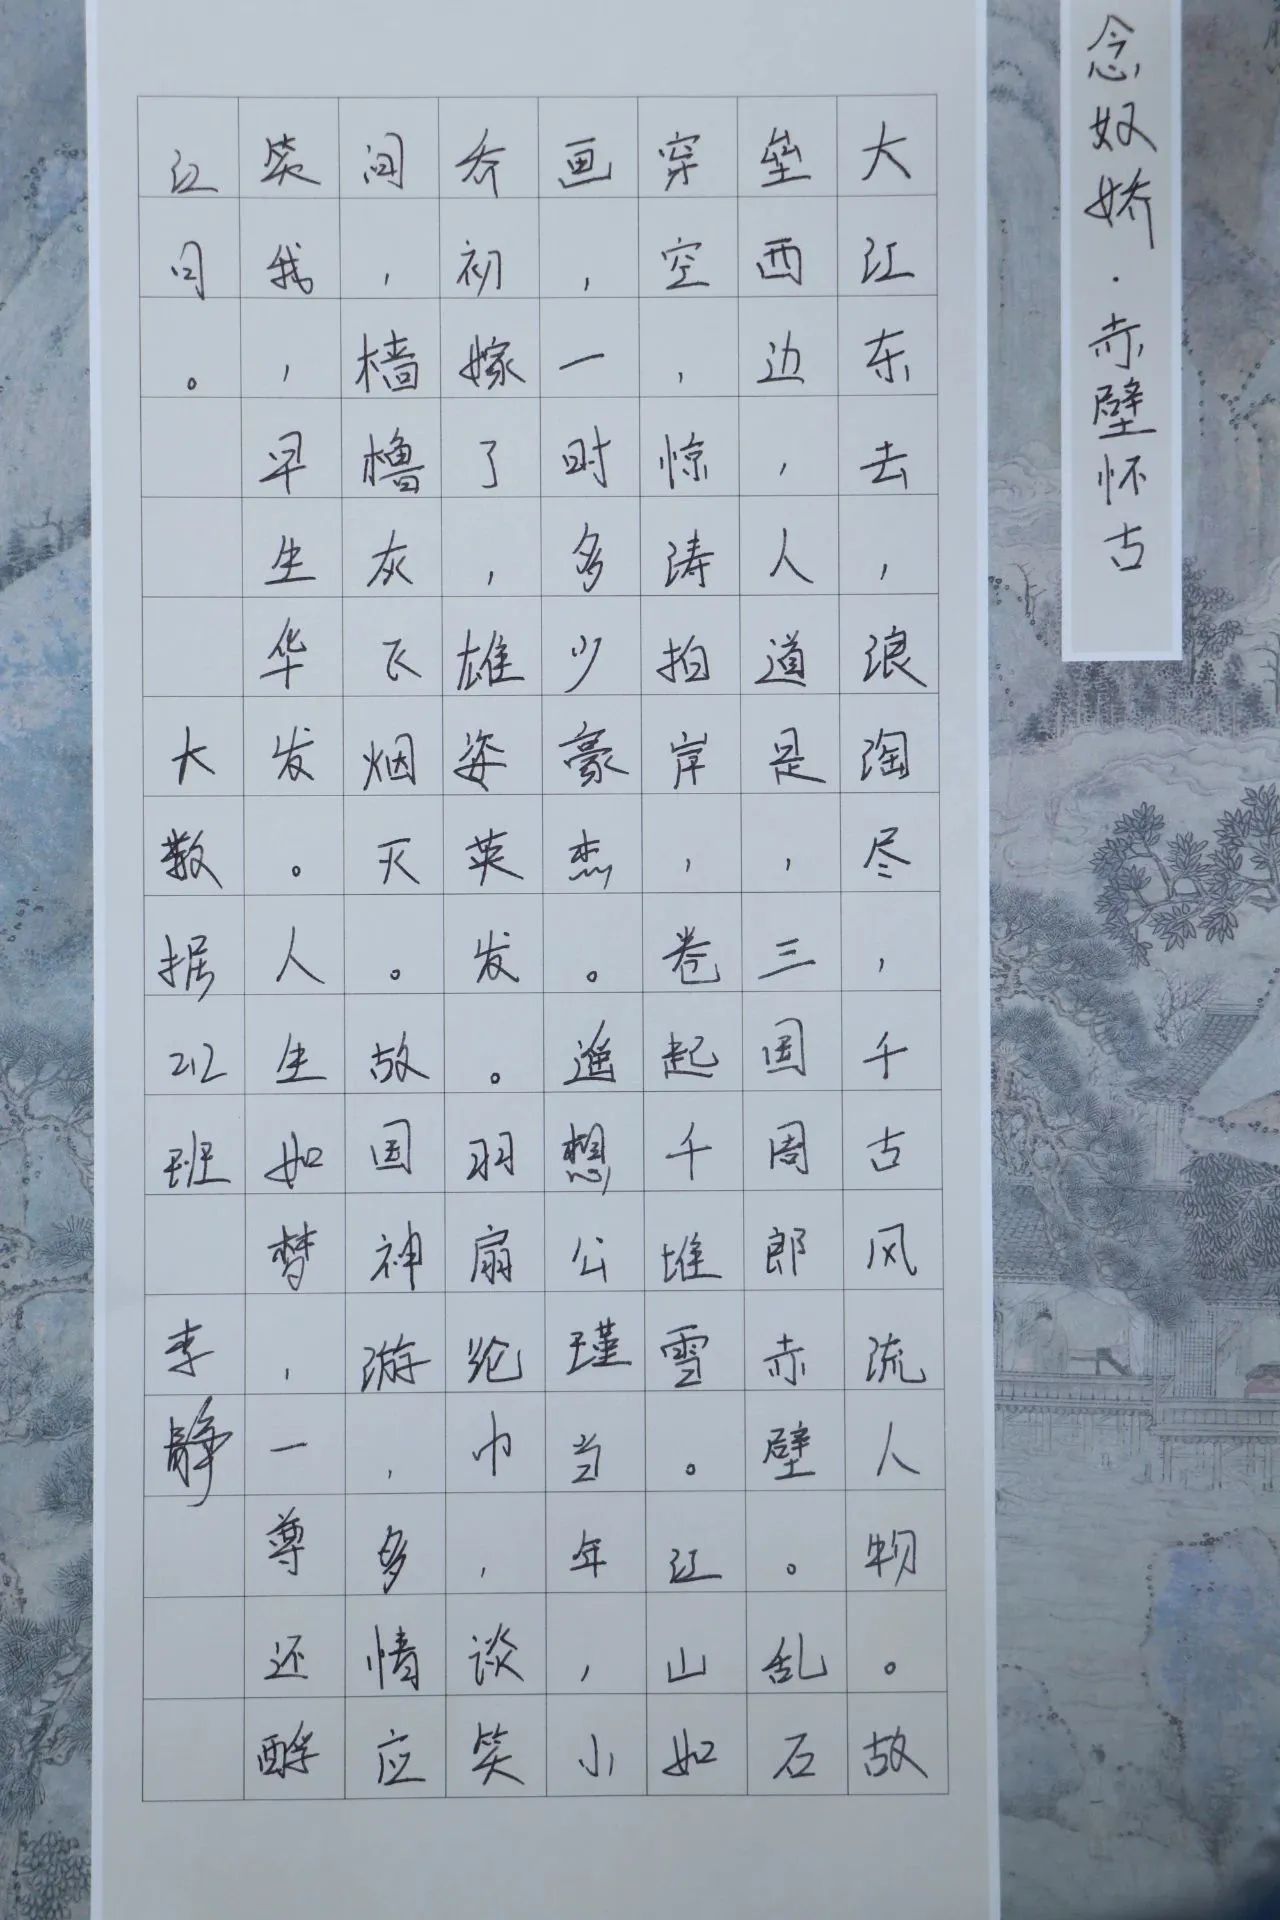 念奴娇·赤壁怀古
大江东去，浪淘尽，千古风流人物。故
垒西边，人道是，三国周郎赤壁。乱石
穿空，惊涛拍岸，卷起千堆雪。江山如
画，一时多少豪杰。遥想公瑾当年，小
乔初嫁了，雄姿英发。羽扇纶巾，谈笑
间，樯橹灰飞烟灭。故国神游，多情应
笑我，早生华发。人生如梦，一尊还酹
江月。 大数据212班 李静